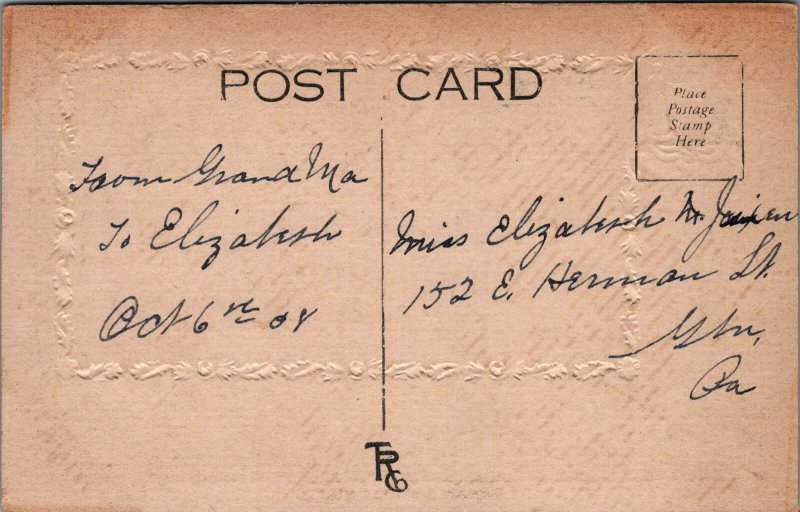 POST CARD
Place
Postage
Stamp
Here
From Grand Ma
To Elizabeth
Oct 6th 08
Miss Elizabeth
152 E. Herman St.
Gtn,
Pa
TRCo